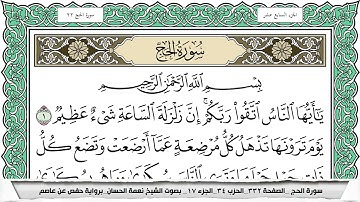 الجزء السابع عشر
سورة الحج ٢٢
سُورَةُ الحَجِّ
بِسْمِ اللَّهِ الرَّحْمَٰنِ الرَّحِيمِ
يَٰٓأَيُّهَا النَّاسُ اتَّقُوا۟ رَبَّكُمْ إِنَّ زَلْزَلَةَ السَّاعَةِ شَىْءٌ عَظِيمٌ ١
يَوْمَ تَرَوْنَهَا تَذْهَلُ كُلُّ مُرْضِعَةٍ عَمَّآ أَرْضَعَتْ وَتَضَعُ كُلُّ
سورة الحج _ الصفحة ٣٣٢_ الحزب ٣٤_ الجزء ١٧_ بصوت الشيخ نعمة الحسان _برواية حفص عن عاصم